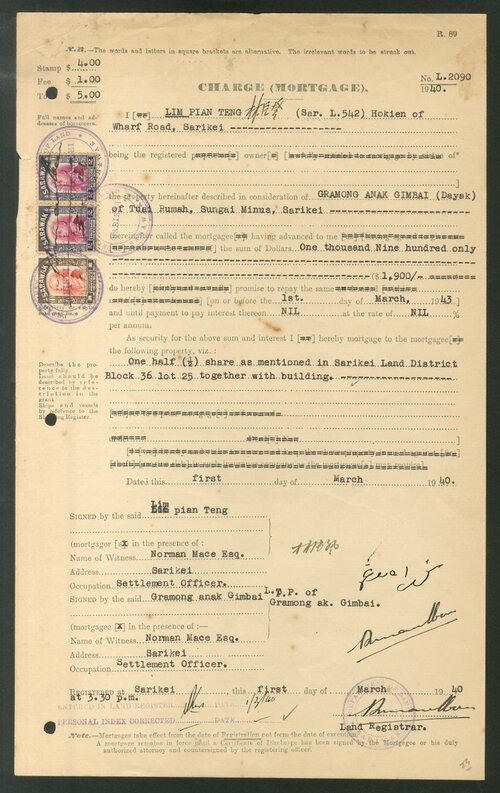 R. 89
N.B.—The words and letters in square brackets are alternative. The irrelevant words to be struck out.
Stamp $ 4.00
Fee $ 1.00
$ 5.00
No. L.2090
CHARGE (MORTGAGE).
1940.
Full names and addresses of borrowers.
I [we] LIM PIAN TENG (Sar. L.542) Hokien of
Wharf Road, Sarikei
being the registered owner
the property hereinafter described in consideration of GRAMONG ANAK GIMBAI (Dayak)
of Tuai Rumah, Sungai Minus, Sarikei
hereinafter called the mortgagee having advanced to me
the sum of Dollars One thousand Nine hundred only
($ 1,900/-
do hereby promise to repay the same
[on or before the 1st. day of March, 1943
and until payment to pay interest thereon NIL at the rate of NIL %
per annum.
As security for the above sum and interest I hereby mortgage to the mortgagee
the following property, viz. :
Describe the property fully.
Land should be described by reference to the description in the grant
Ships and vessels by reference to the Shipping Register.
One half (½) share as mentioned in Sarikei Land District
Block 36 lot 25 together with building.
Dated this first day of March 1940.
SIGNED by the said Lim pian Teng
(mortgagor [x] in the presence of :
Name of Witness Norman Mace Esq.
Address Sarikei
Occupation Settlement Officer.
SIGNED by the said Gramong anak Gimbai
L.T.P. of
Gramong ak. Gimbai.
(mortgagee [x] in the presence of :—
Name of Witness Norman Mace Esq.
Address Sarikei
Occupation Settlement Officer.
REGISTERED at Sarikei, this first day of March 1940
at 3.30 p.m.
ENTERED IN LAND REGISTER DATE 1/3/40
PERSONAL INDEX CORRECTED DATE
Land Registrar.
Note.—Mortgages take effect from the date of Registration not form the date of execution.
A mortgage remains in force until a Certificate of Discharge has been signed by the Mortgagee or his duly
authorized attorney and countersigned by the registering officer.